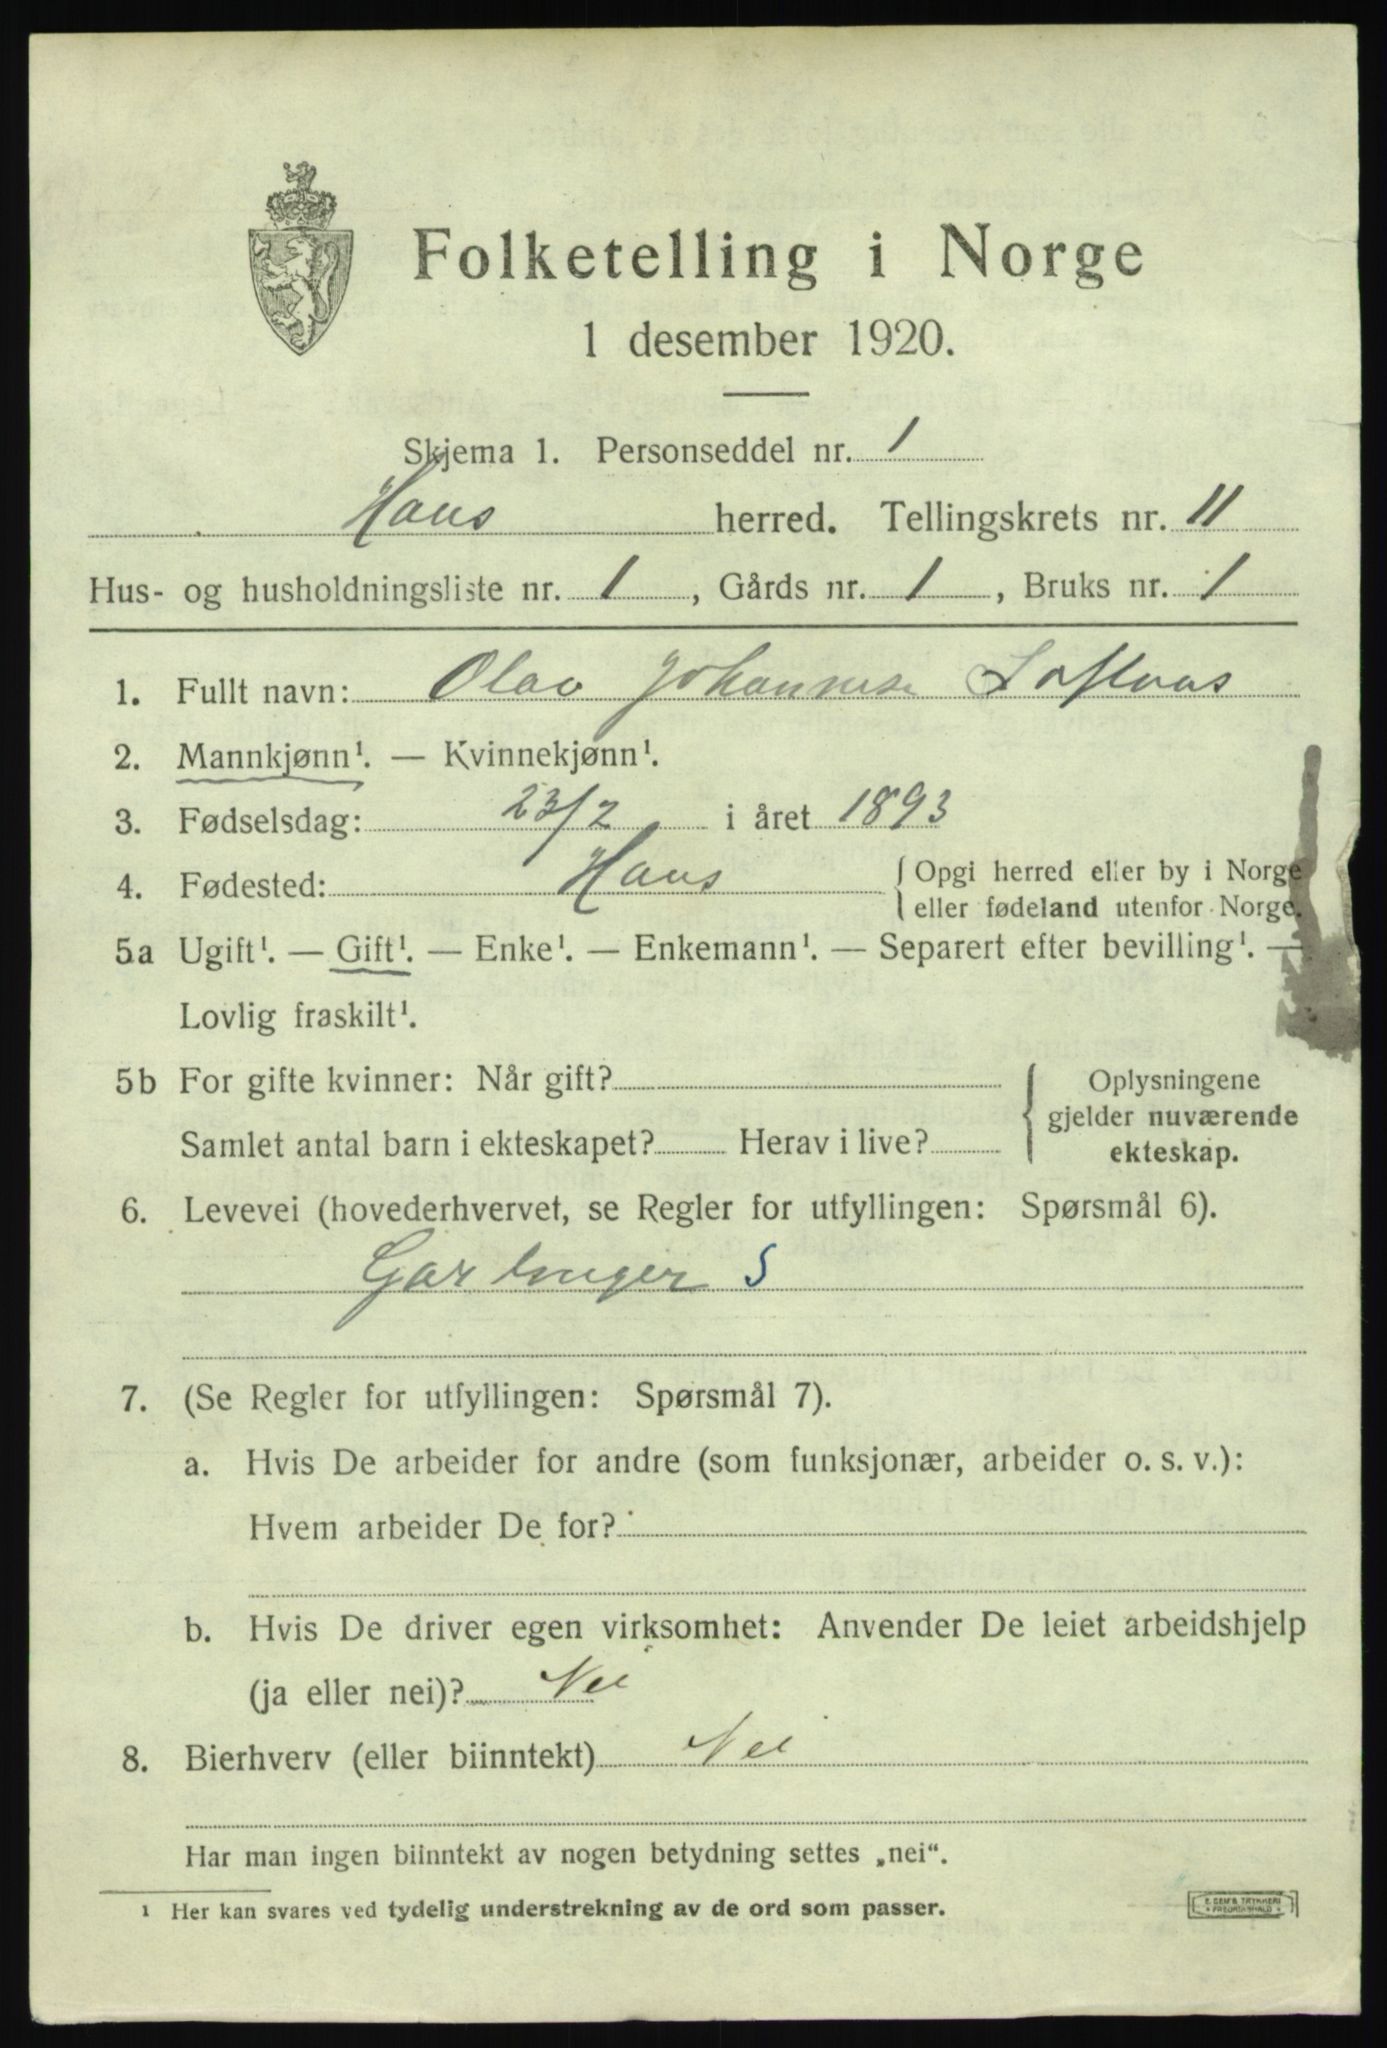 Folketelling i Norge
1 desember 1920.
Skjema 1. Personseddel nr. 1
Haus herred. Tellingskrets nr. 11
Hus- og husholdningsliste nr. 1, Gårds nr. 1, Bruks nr. 1
1. Fullt navn: Olav Johannesen Loftaas
2. Mannkjønn¹. — Kvinnekjønn¹.
3. Fødselsdag: 23/2 i året 1893
4. Fødested: Haus { Opgi herred eller by i Norge
eller fødeland utenfor Norge.
5a Ugift¹. — Gift¹. — Enke¹. — Enkemann¹. — Separert efter bevilling¹. —
Lovlig fraskilt¹.
5b For gifte kvinner: Når gift? { Oplysningene
gjelder nuværende
Samlet antal barn i ekteskapet? Herav i live? ekteskap.
6. Levevei (hovederhvervet, se Regler for utfyllingen: Spørsmål 6).
Garbruger S
7. (Se Regler for utfyllingen: Spørsmål 7).
a. Hvis De arbeider for andre (som funksjonær, arbeider o. s. v.):
Hvem arbeider De for?
b. Hvis De driver egen virksomhet: Anvender De leiet arbeidshjelp
(ja eller nei)? Nei
8. Bierhverv (eller biinntekt) Nei
Har man ingen biinntekt av nogen betydning settes „nei“.
¹ Her kan svares ved tydelig understrekning av de ord som passer.
E. SEM'S TRYKKERI
FREDRIKSHALD